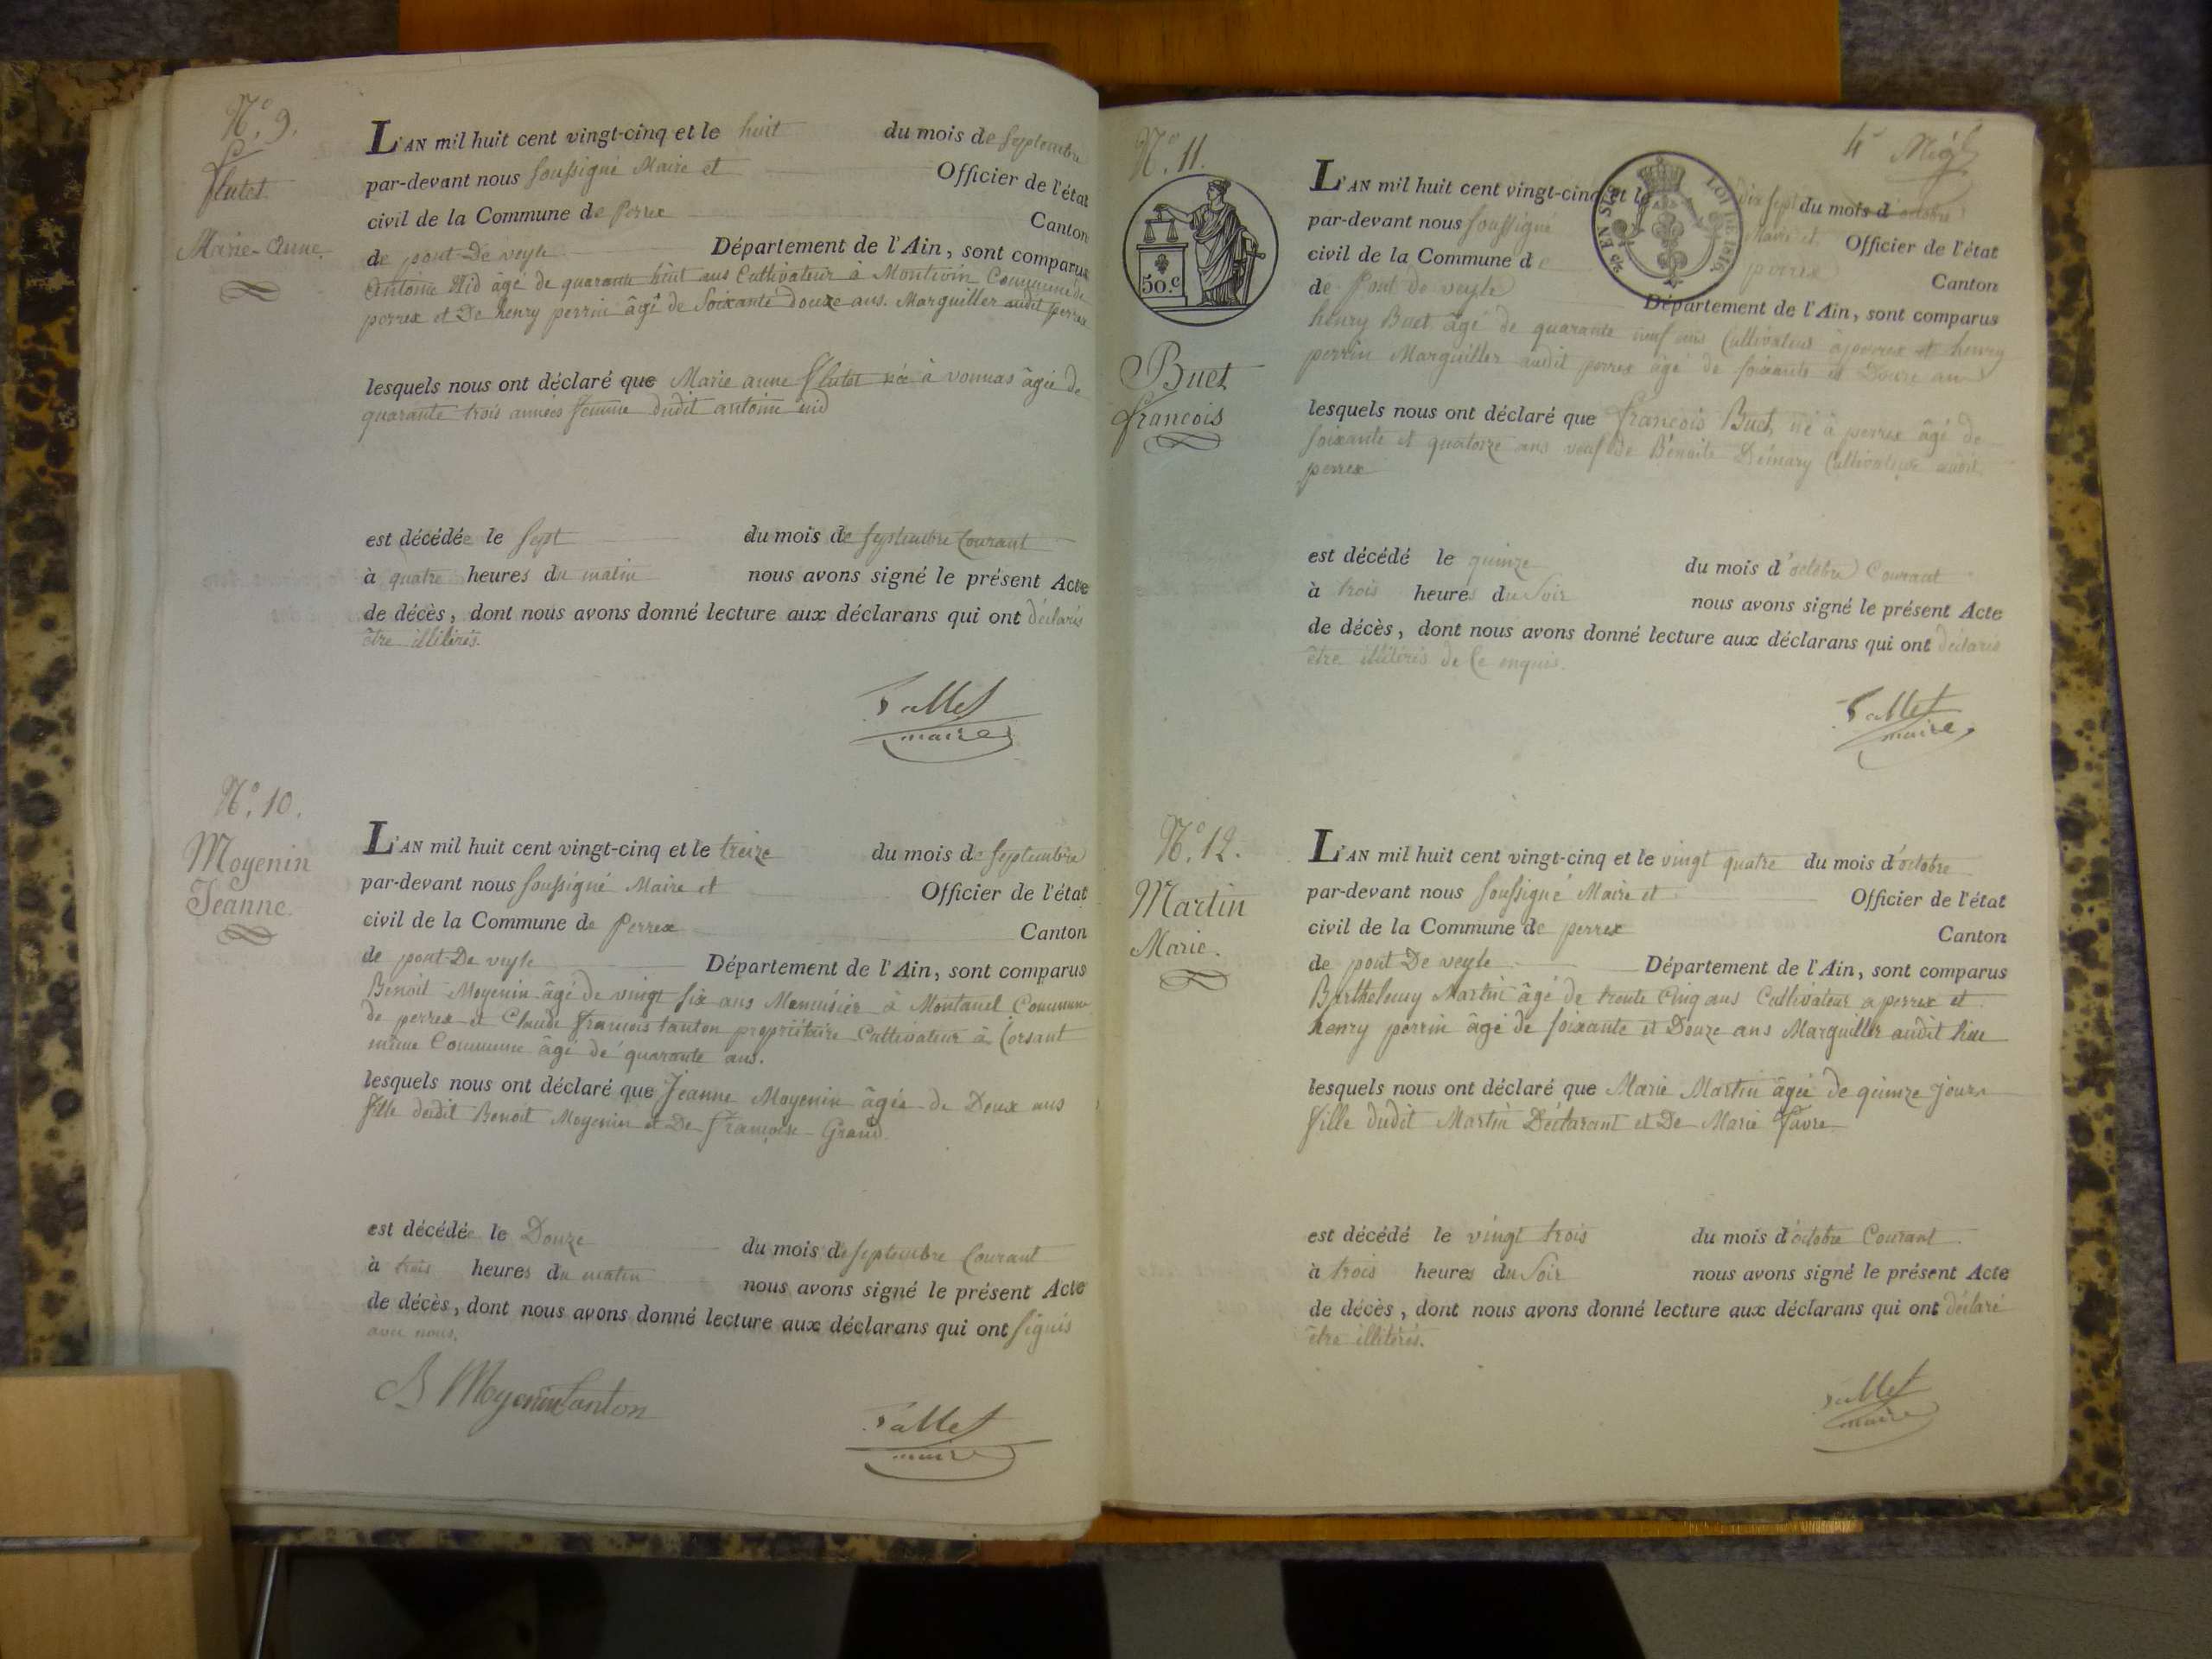 N.° 9.
Flutet
Marie-Anne.
L'AN mil huit cent vingt-cinq et le huit du mois de septembre
par-devant nous soussigné Maire et Officier de l'état
civil de la Commune de Perrex Canton
de pont-De veyle Département de l'Ain, sont comparus
antoine Nid âgé de quarante huit ans Cultivateur à Montivin Commune de
perrex et De henry perrin âgé de Soixante douze ans. Marguiller audit perrex
lesquels nous ont déclaré que Marie anne flutet née à vonnas âgée de
quarante trois années femme dudit antoine nid
est décédée le sept du mois de septembre Courant
à quatre heures du matin nous avons signé le présent Acte
de décès, dont nous avons donné lecture aux déclarans qui ont déclarés
être illitérés.
Vallet
maire
N.° 10.
Moyenin
Jeanne.
L'AN mil huit cent vingt-cinq et le treize du mois de septembre
par-devant nous soussigné Maire et Officier de l'état
civil de la Commune de Perrex Canton
de pont-De veyle Département de l'Ain, sont comparus
Benoit Moyenin âgé de vingt six ans Menuisier à Montanel Commune
de perrex et Claude françois tanton propriétaire Cultivateur à Corsant
même Commune âgé de quarante ans.
lesquels nous ont déclaré que Jeanne Moyenin âgée de Deux ans
fille dudit Benoit Moyenin et De françoise Grand.
est décédée le Douze du mois de septembre Courant
à trois heures du matin nous avons signé le présent Acte
de décès, dont nous avons donné lecture aux déclarans qui ont signés
avec nous.
B Moyenin tanton
Vallet
maire
4e
N.° 11.
50.c
EN SUS
LOI DE 1816.
Buet
françois
L'AN mil huit cent vingt-cinq et le dix sept du mois d'octobre
par-devant nous soussigné Maire et Officier de l'état
civil de la Commune de perrex Canton
de Pont de veyle Département de l'Ain, sont comparus
henry Buet âgé de quarante neuf ans Cultivateur à perrex et henry
perrin Marguiller audit perrex âgé de soixante et Douze ans
lesquels nous ont déclaré que françois Buet, né à perrex âgé de
soixante et quatorze ans veuf de Bénoite Démary Cultivateur audit
perrex
est décédé le quinze du mois d'octobre Courant
à trois heures du Soir nous avons signé le présent Acte
de décès, dont nous avons donné lecture aux déclarans qui ont déclarés
être illitérés de ce enquis.
Vallet
maire
N.° 12.
Martin
Marie.
L'AN mil huit cent vingt-cinq et le vingt quatre du mois d'octobre
par-devant nous soussigné Maire et Officier de l'état
civil de la Commune de perrex Canton
de pont De veyle Département de l'Ain, sont comparus
Barthelemy Martin âgé de trente Cinq ans Cultivateur a perrex et
henry perrin âgé de soixante et Douze ans Marguiller audit lieu
lesquels nous ont déclaré que Marie Martin âgée de quinze jours
fille dudit Martin Déclarant et De Marie Favre
est décédé le vingt trois du mois d'octobre Courant
à trois heures du Soir nous avons signé le présent Acte
de décès, dont nous avons donné lecture aux déclarans qui ont déclaré
être illitérés.
Vallet
maire